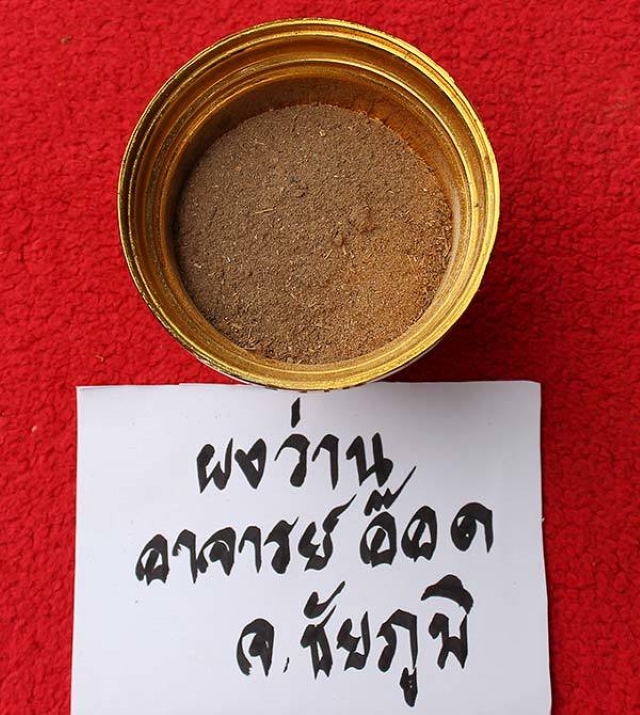 ผงว่าน
อาจารย์อ๊อด
จ.ชัยภูมิ